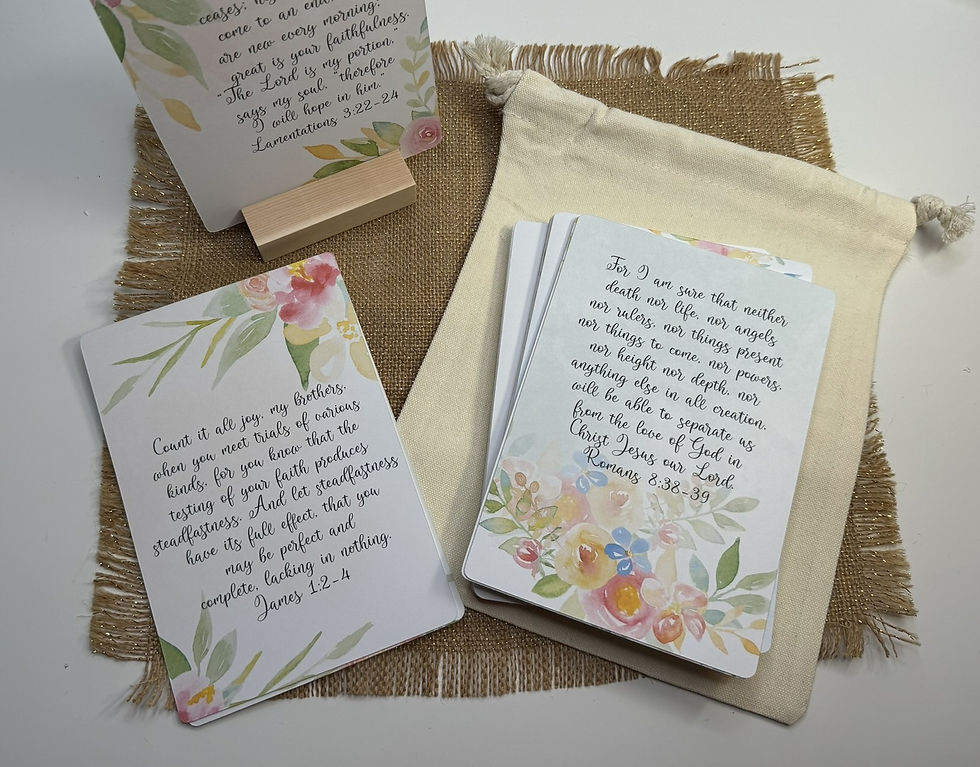 ceases;
come to an end;
are new every morning;
great is your faithfulness.
"The Lord is my portion,"
says my soul, "therefore
I will hope in him."
Lamentations 3:22-24
Count it all joy, my brothers,
when you meet trials of various
kinds; for you know that the
testing of your faith produces
steadfastness. And let steadfastness
have its full effect, that you
may be perfect and
complete, lacking in nothing.
James 1:2-4
For I am sure that neither
death nor life, nor angels
nor rulers, nor things present
nor things to come, nor powers,
nor height nor depth, nor
anything else in all creation,
will be able to separate us
from the love of God in
Christ Jesus our Lord.
Romans 8:38-39